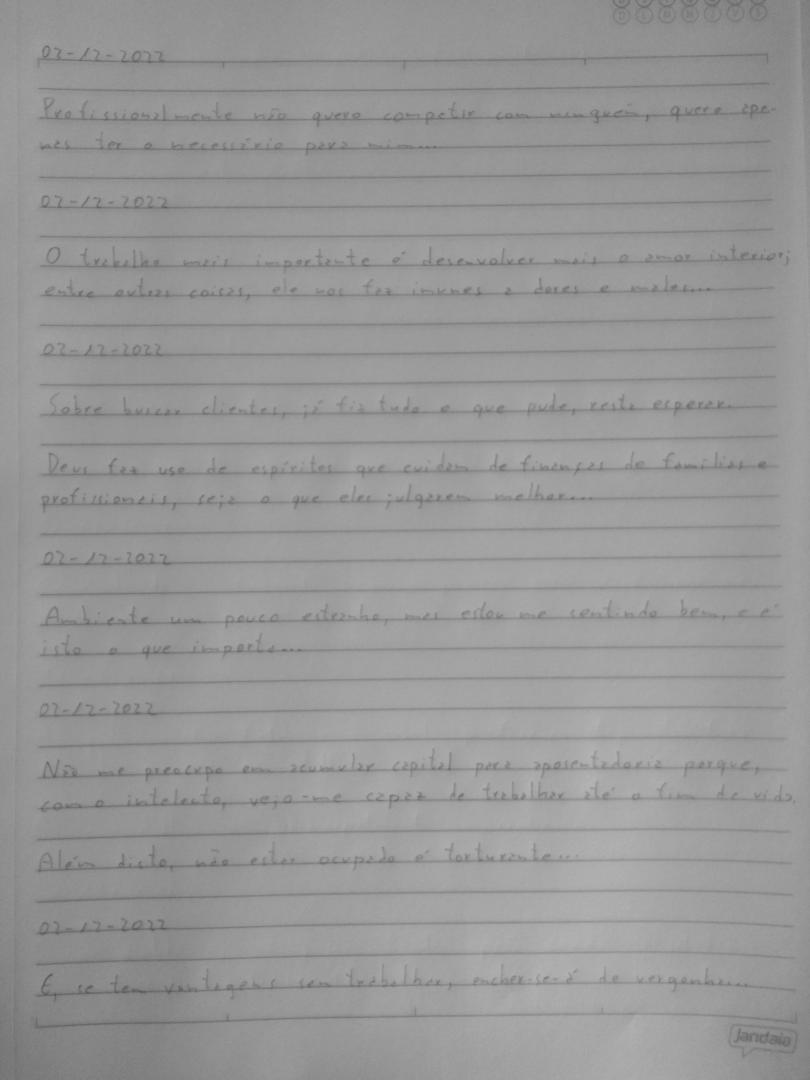 D L M M J V S
02-12-2022
Profissionalmente não quero competir com ninguém, quero ape-
nas ter o necessário para mim...
02-12-2022
O trabalho mais importante é desenvolver mais o amor interior;
entre outras coisas, ele nos faz imunes a dores e males...
02-12-2022
Sobre buscar clientes, já fiz tudo o que pude, resta esperar.
Deus faz uso de espíritos que cuidam de finanças de famílias e
profissionais, seja o que eles julgarem melhor...
02-12-2022
Ambiente um pouco estranho, mas estou me sentindo bem, e é
isto o que importa...
02-12-2022
Não me preocupo em acumular capital para aposentadoria porque,
com o intelecto, vejo-me capaz de trabalhar até o fim de vida.
Além disto, não estar ocupado é torturante...
02-12-2022
E, se tem vantagens sem trabalhar, encher-se-á de vergonha...
Jandaia